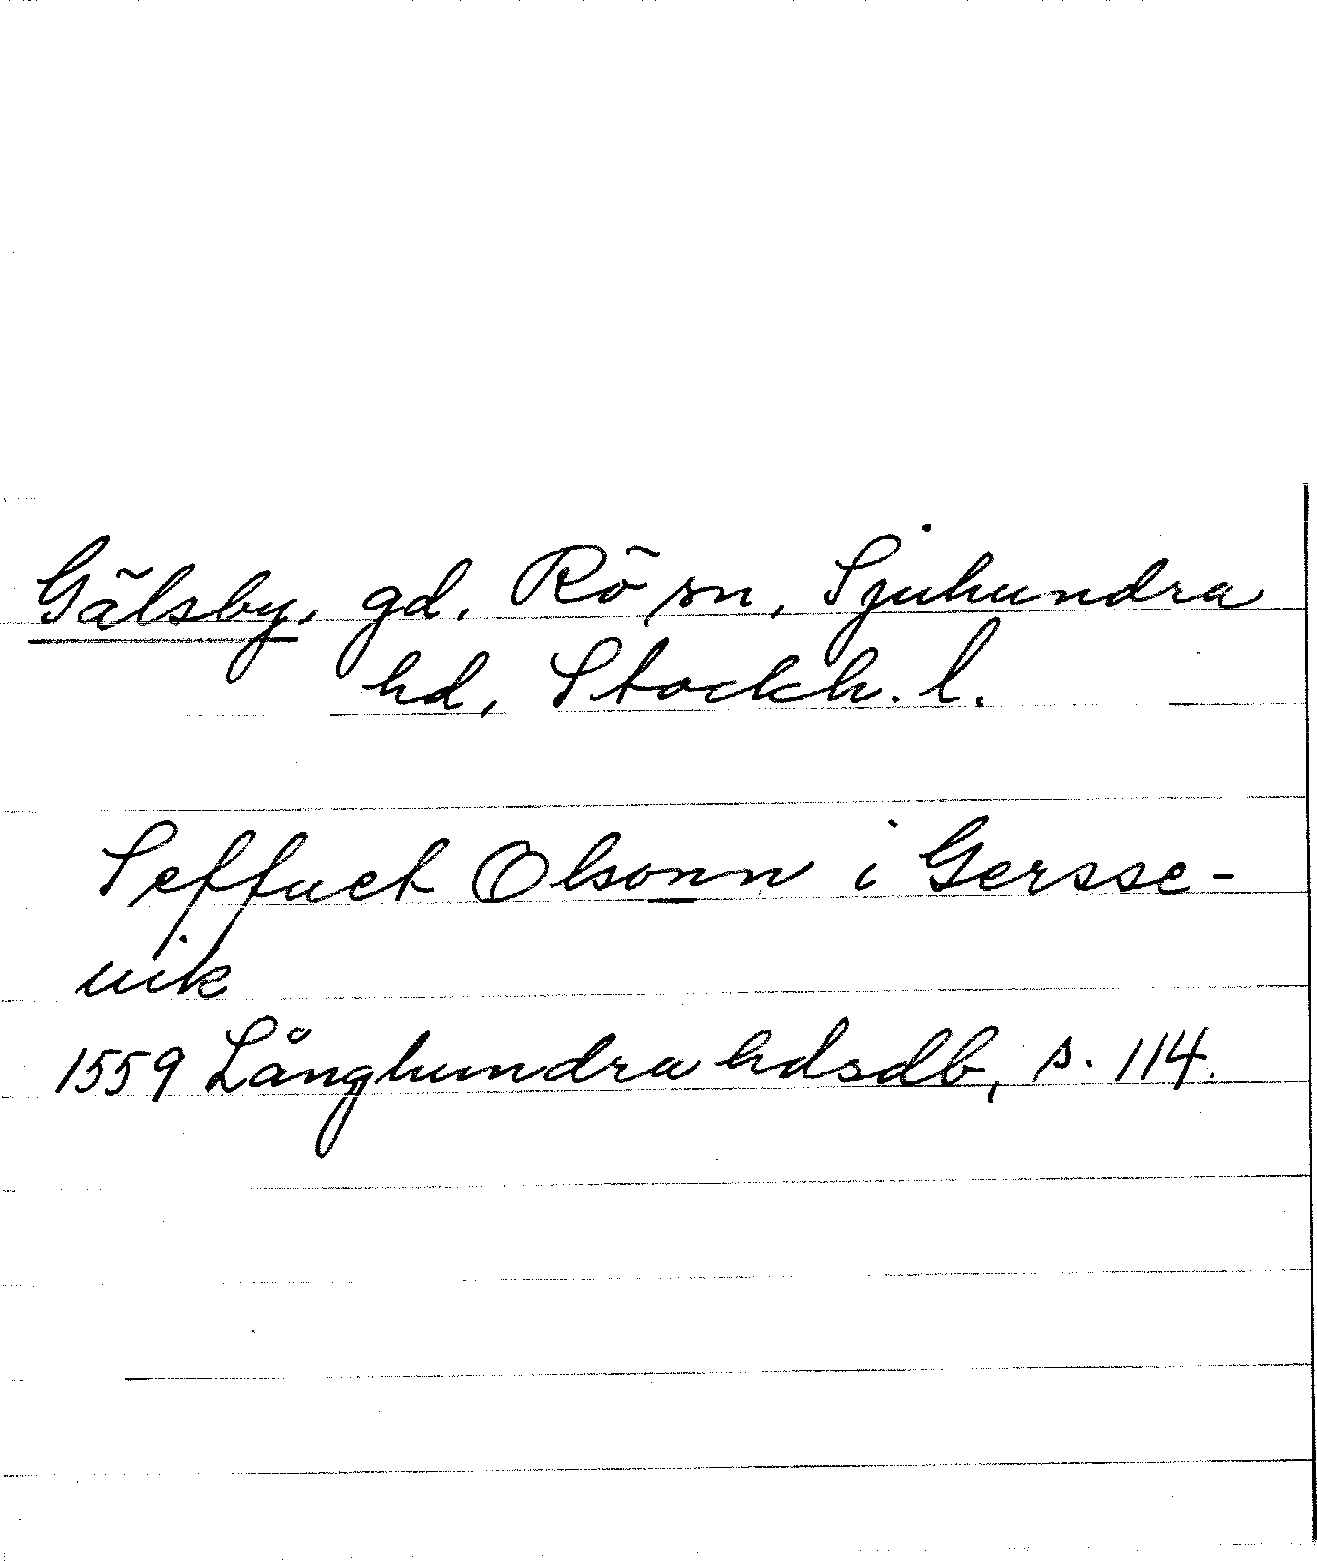 Gälsby, gd, Rö sn, Sjuhundra
hd, Stockh. l.
Seffuet Olsonn i Gersse-
uik
1559 Långhundra hdsdb, s. 114.